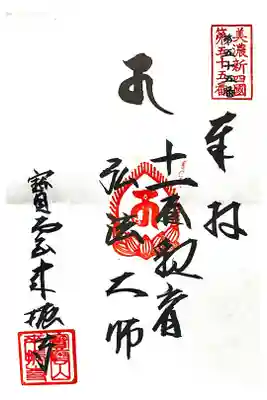 美濃新四國
第五十五番
奉拝
十一面観音
弘法大師
寳雪山来振寺